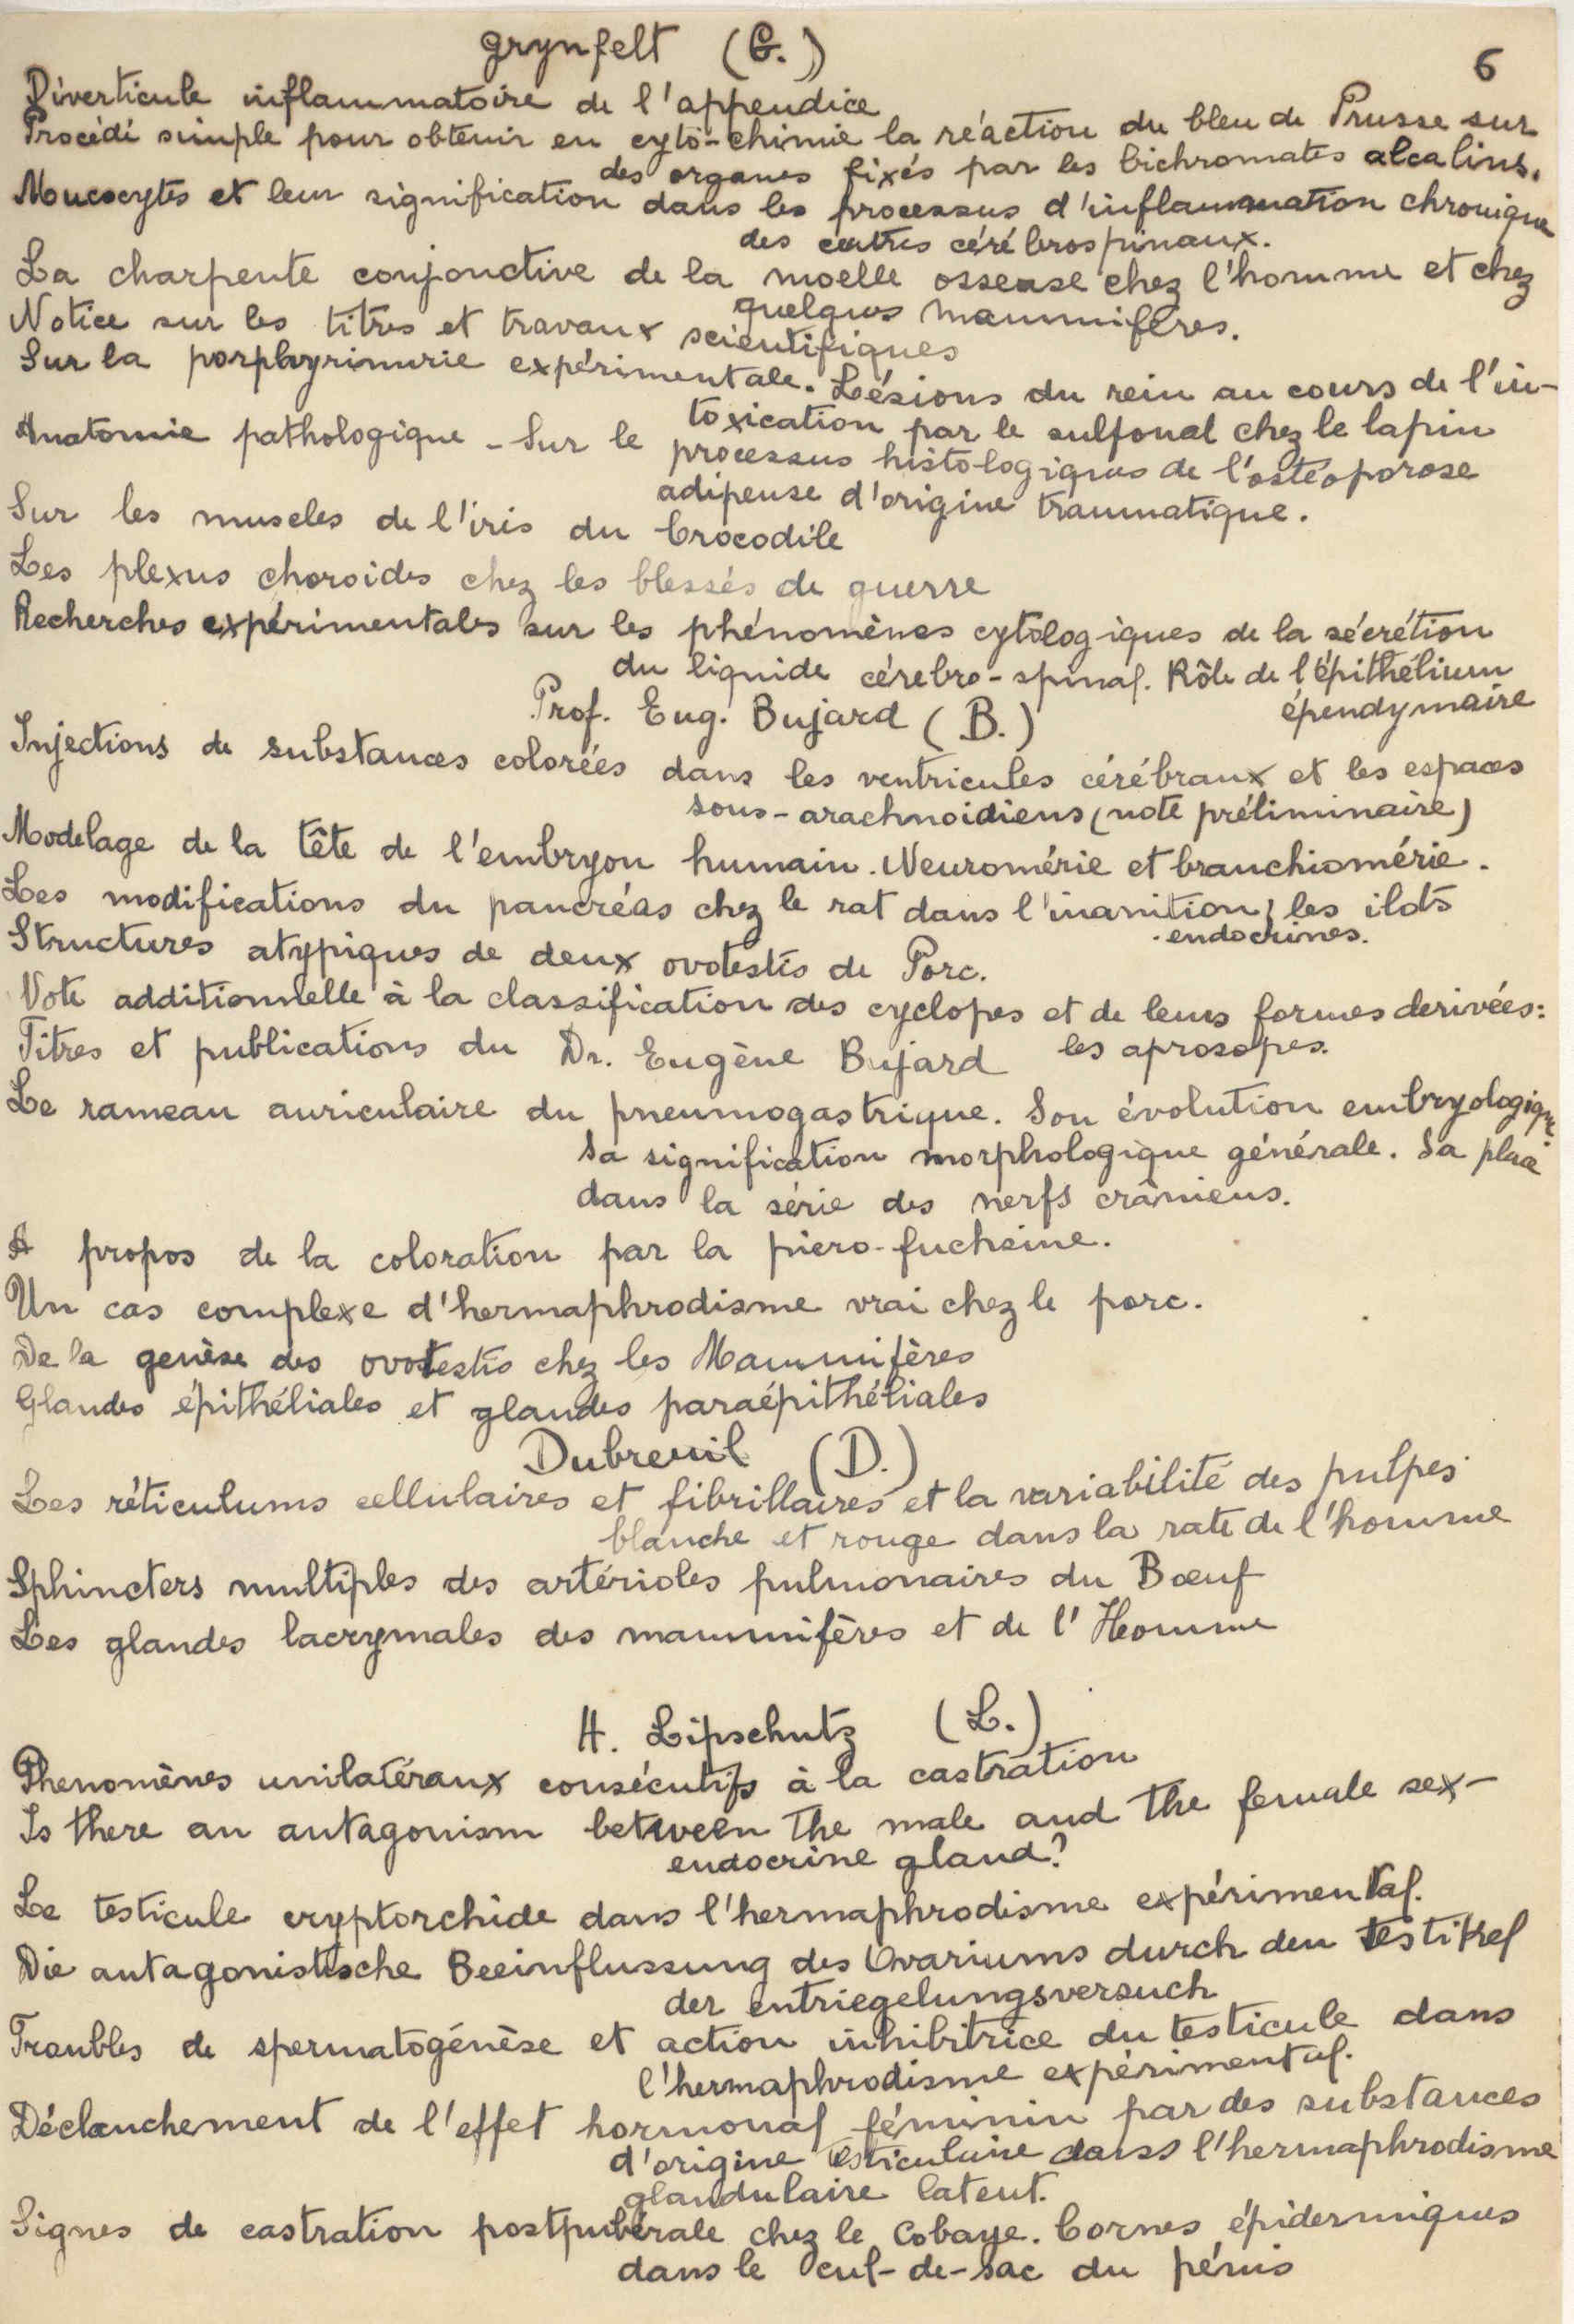 Grynfelt (G.)
6
Diverticule inflammatoire de l'appendice
Procédé simple pour obtenir en cyto-chimie la réaction du bleu de Prusse sur
des organes fixés par les bichromates alcalins.
Mucocytes et leur signification dans les processus d'inflammation chronique
des centres cérébrospinaux.
La charpente conjonctive de la moelle osseuse chez l'homme et chez
quelques mammifères.
Notice sur les titres et travaux scientifiques
Sur la porphyrinurie expérimentale. Lésions du rein au cours de l'in-
toxication par le sulfonal chez le lapin
Anatomie pathologique - Sur le processus histologiques de l'ostéoporose
adipeuse d'origine traumatique.
Sur les muscles de l'iris du Crocodile
Les plexus choroïdes chez les blessés de guerre
Recherches expérimentales sur les phénomènes cytologiques de la sécrétion
du liquide cérebro-spinal. Rôle de l'épithélium
épendymaire
Prof. Eug. Bujard (B.)
Injections de substances colorées dans les ventricules cérébraux et les espaces
sous-arachnoidiens (note préliminaire)
Modelage de la tête de l'embryon humain. Neuromérie et branchiomérie.
Les modifications du pancréas chez le rat dans l'inanition; les ilots
endocrines.
Structures atypiques de deux ovotestis de Porc.
Note additionnelle à la classification des cyclopes et de leurs formes derivées:
les aprosopes.
Titres et publications du Dr. Eugène Bujard
Le rameau auriculaire du pneumogastrique. Son évolution embryologique.
Sa signification morphologique générale. Sa place
dans la série des nerfs crâniens.
A propos de la coloration par la picro-fuchsine.
Un cas complexe d'hermaphrodisme vrai chez le porc.
De la genèse des ovotestis chez les Mammifères
Glandes épithéliales et glandes paraépithéliales
Dubreuil (D.)
Les réticulums cellulaires et fibrillaires et la variabilité des pulpes
blanche et rouge dans la rate de l'homme
Sphincters multiples des artérioles pulmonaires du Bœuf
Les glandes lacrymales des mammifères et de l'Homme
A. Lipschutz (L.)
Phenomènes unilatéraux consécutifs à la castration
Is there an antagonism between the male and the female sex-
endocrine gland?
Le testicule cryptorchide dans l'hermaphrodisme expérimental.
Die antagonistische Beeinflussung des Ovariums durch den Testikel
der entriegelungsversuch
Troubles de spermatogénèse et action inhibitrice du testicule dans
l'hermaphrodisme expérimental.
Déclanchement de l'effet hormonal féminin par des substances
d'origine testiculaire dans l'hermaphrodisme
glandulaire latent.
Signes de castration postpubérale chez le Cobaye. Cornes épidermiques
dans le cul-de-sac du pénis